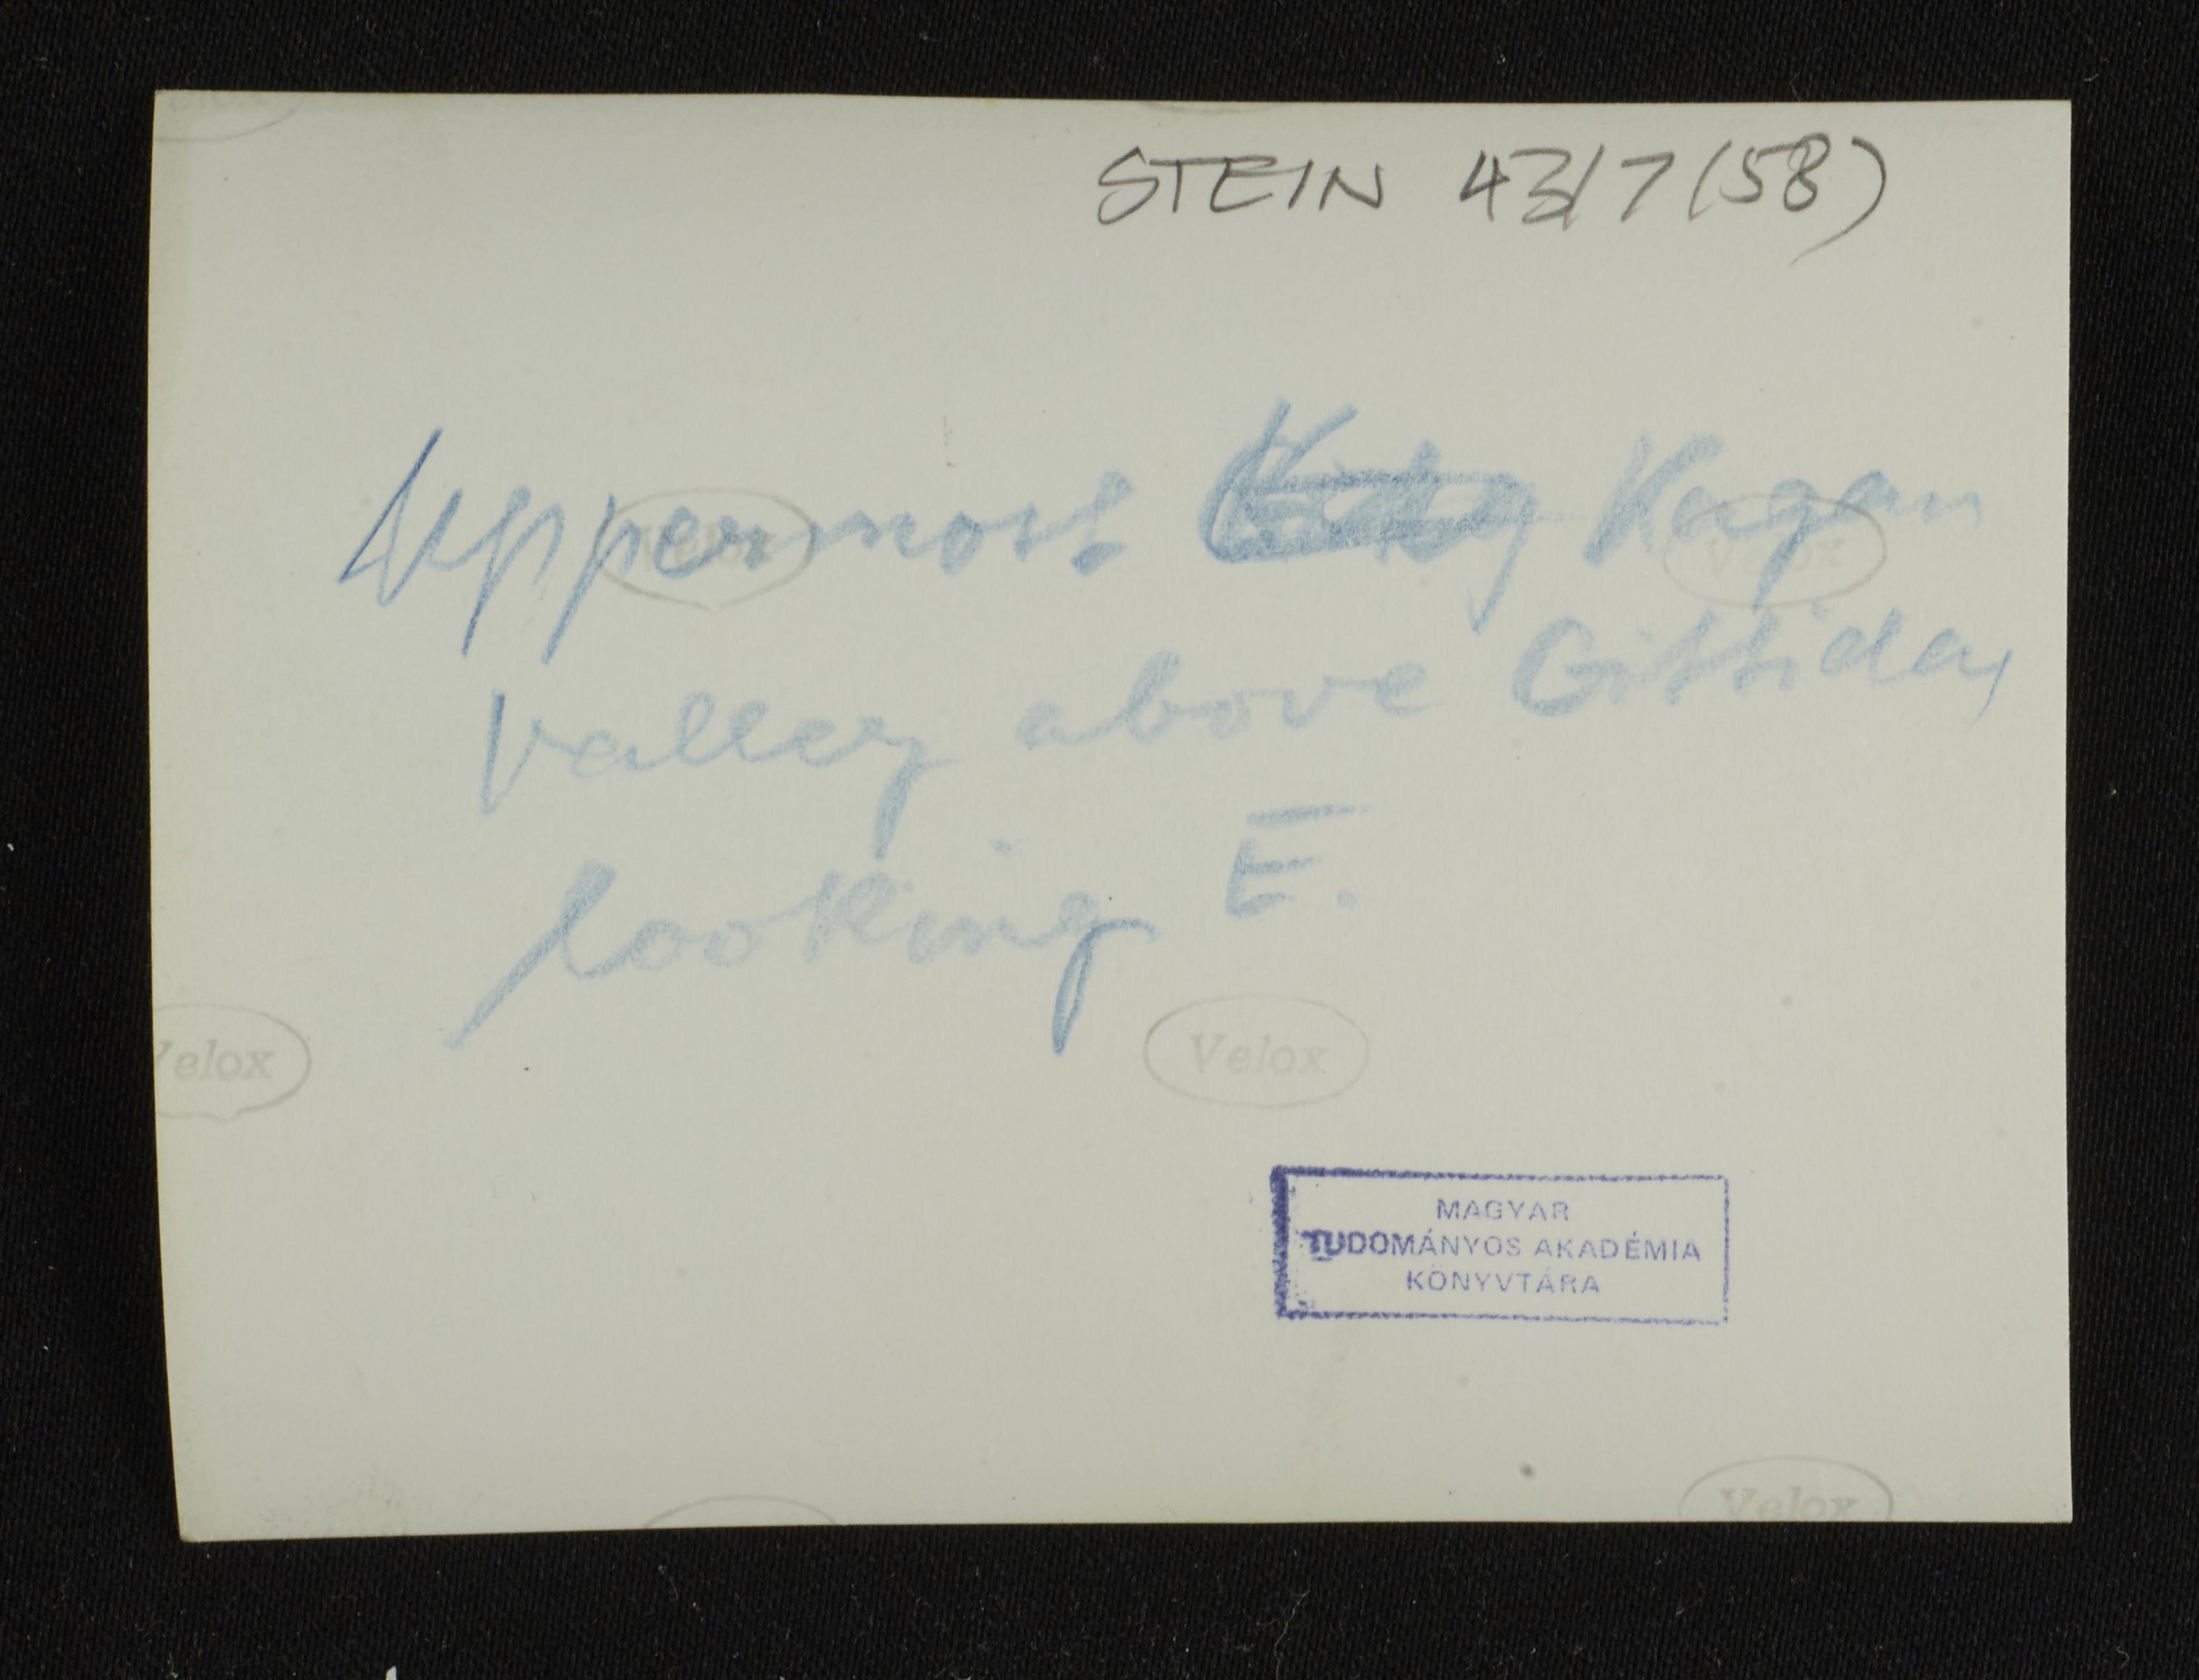 STEIN 43/7 (58)
Uppermost Kagan
valley above Gittidas
looking E.
Velox
Velox
Velox
Velox
Velox
MAGYAR
TUDOMÁNYOS AKADÉMIA
KÖNYVTÁRA